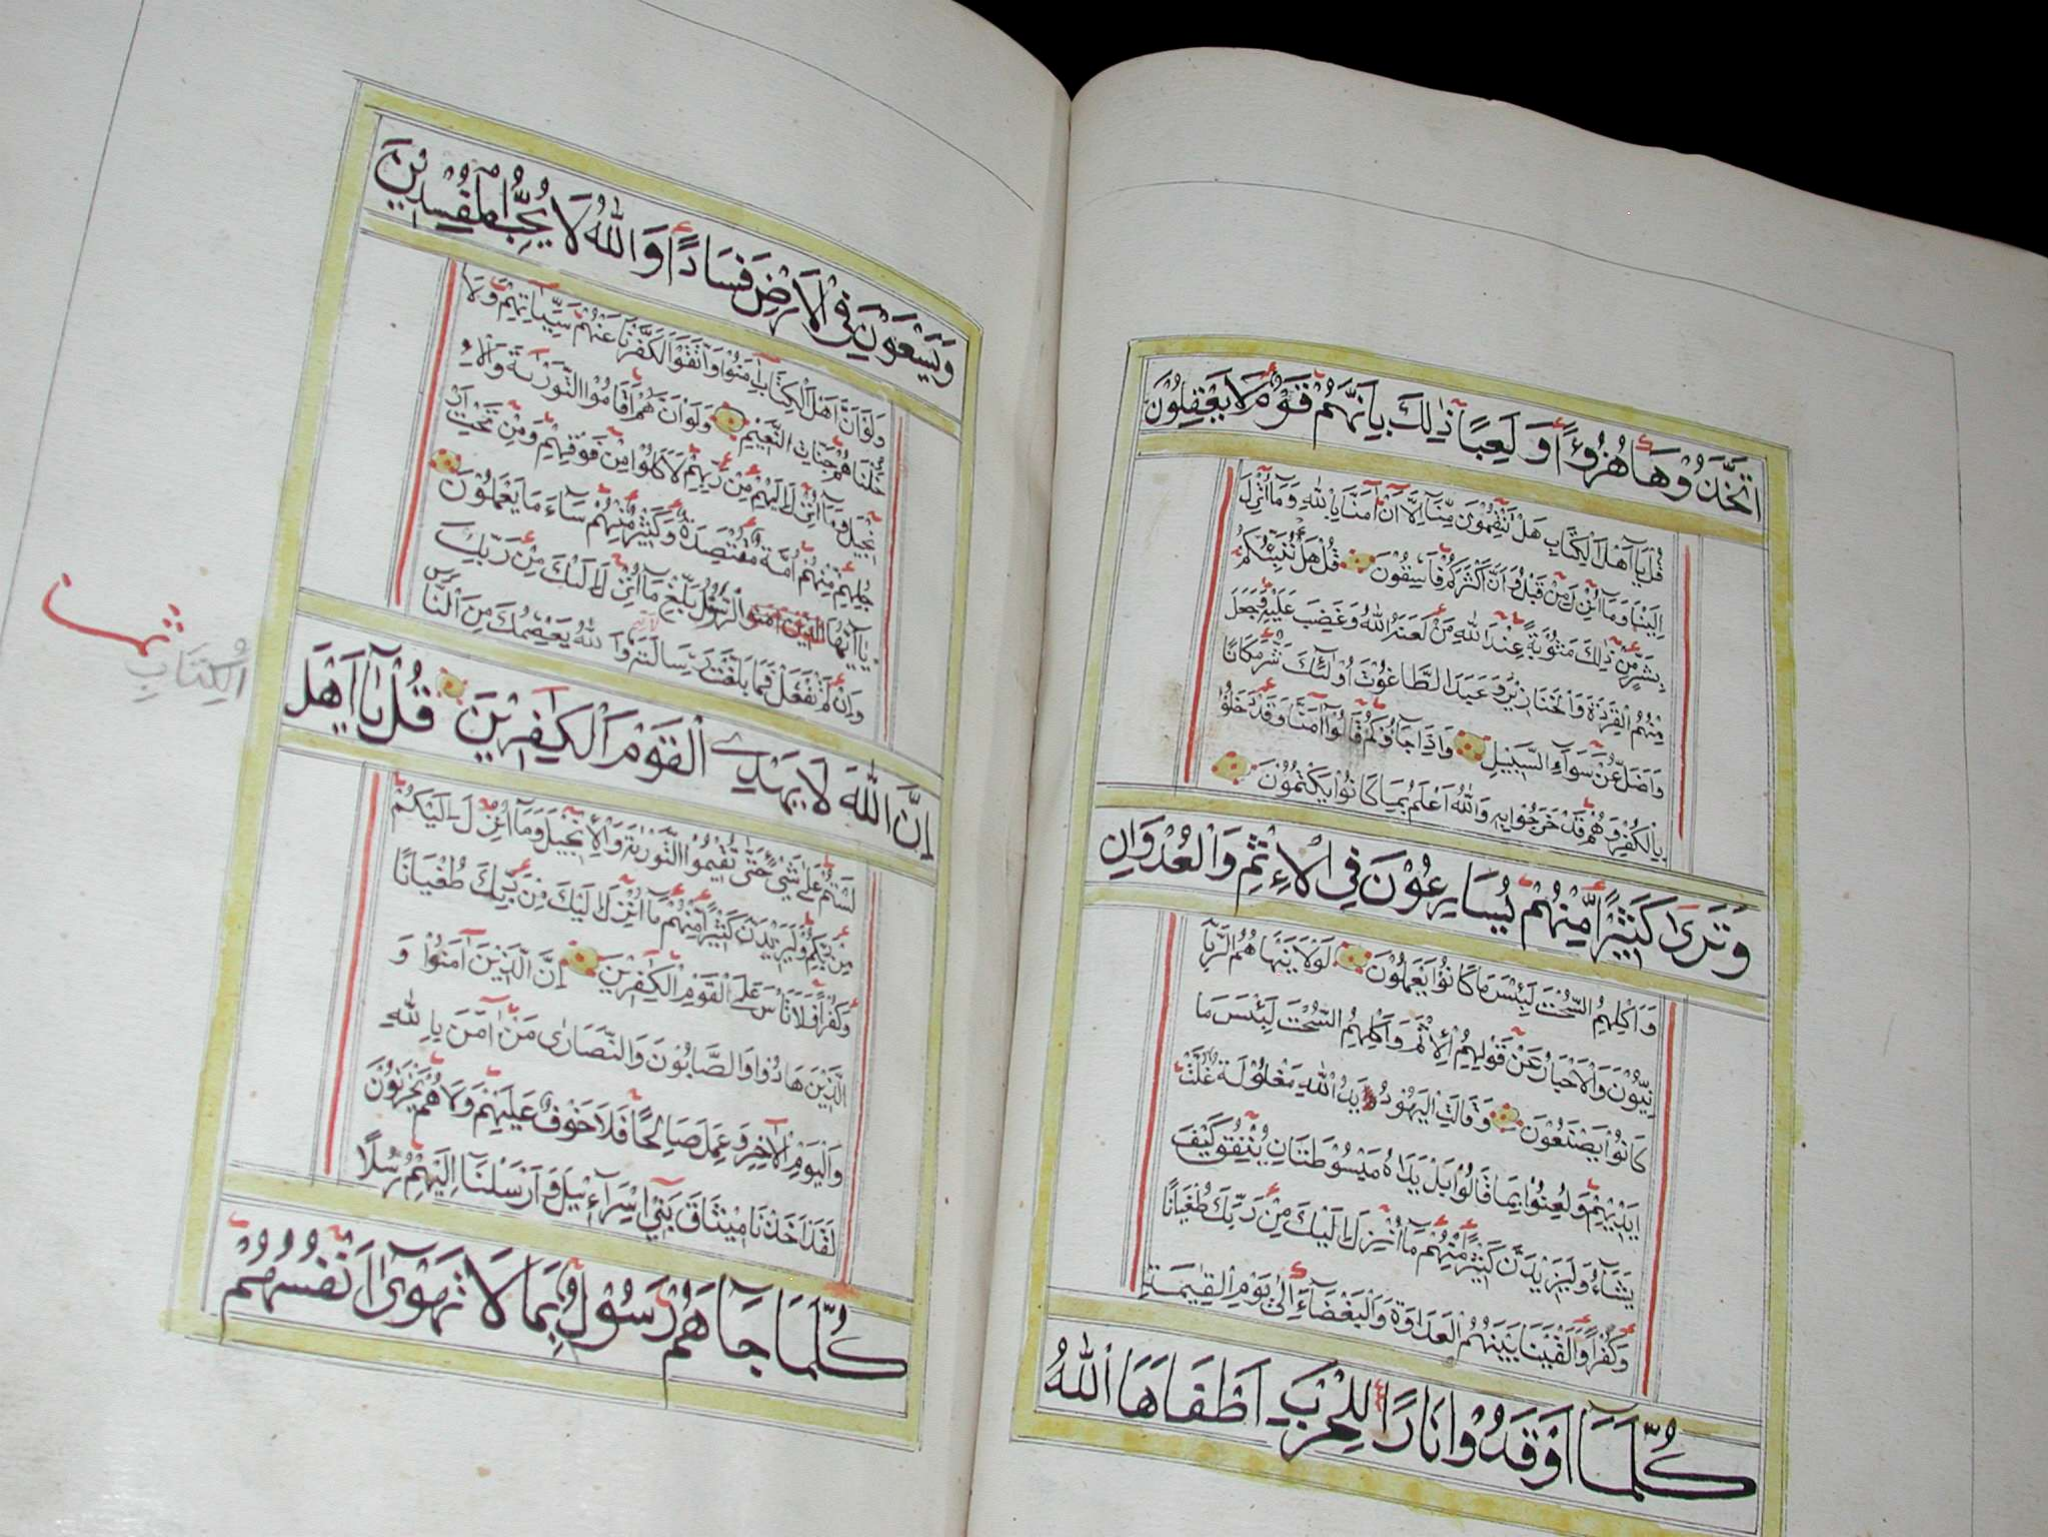 اتَّخَذُوْهَا هُزُوءًا وَلَعِبًا ذٰلِكَ بِاَنَّهُمْ قَوْمٌ لَا يَعْقِلُوْنَ
قُلْ يَآ اَهْلَ الْكِتَابِ هَلْ تَنْقِمُوْنَ مِنَّآ اِلَّآ اَنْ اٰمَنَّا بِاللّٰهِ وَمَآ اُنْزِلَ
اِلَيْنَا وَمَآ اُنْزِلَ مِنْ قَبْلُ وَاَنَّ اَكْثَرَكُمْ فَاسِقُوْنَ قُلْ هَلْ اُنَبِّئُكُمْ
بِشَرٍّ مِّنْ ذٰلِكَ مَثُوْبَةً عِنْدَ اللّٰهِ مَنْ لَعَنَهُ اللّٰهُ وَغَضِبَ عَلَيْهِ وَجَعَلَ
مِنْهُمُ الْقِرَدَةَ وَالْخَنَازِيْرَ وَعَبَدَ الطَّاغُوْتَ اُولٰٓئِكَ شَرٌّ مَكَانًا
وَاَضَلُّ عَنْ سَوَآءِ السَّبِيْلِ وَاِذَا جَآؤُكُمْ قَالُوْآ اٰمَنَّا وَقَدْ دَخَلُوْا
بِالْكُفْرِ وَهُمْ قَدْ خَرَجُوْا بِهٖ وَاللّٰهُ اَعْلَمُ بِمَا كَانُوْا يَكْتُمُوْنَ
وَتَرٰى كَثِيْرًا مِّنْهُمْ يُسَارِعُوْنَ فِي الْاِثْمِ وَالْعُدْوَانِ
وَاَكْلِهِمُ السُّحْتَ لَبِئْسَ مَا كَانُوْا يَعْمَلُوْنَ لَوْلَا يَنْهَاهُمُ الرَّبَّا
نِيُّوْنَ وَالْاَحْبَارُ عَنْ قَوْلِهِمُ الْاِثْمَ وَاَكْلِهِمُ السُّحْتَ لَبِئْسَ مَا
كَانُوْا يَصْنَعُوْنَ وَقَالَتِ الْيَهُوْدُ يَدُ اللّٰهِ مَغْلُوْلَةٌ غُلَّتْ
اَيْدِيْهِمْ وَلُعِنُوْا بِمَا قَالُوْا بَلْ يَدَاهُ مَبْسُوْطَتَانِ يُنْفِقُ كَيْفَ
يَشَآءُ وَلَيَزِيْدَنَّ كَثِيْرًا مِّنْهُمْ مَآ اُنْزِلَ اِلَيْكَ مِنْ رَبِّكَ طُغْيَانًا
وَكُفْرًا وَاَلْقَيْنَا بَيْنَهُمُ الْعَدَاوَةَ وَالْبَغْضَآءَ اِلٰى يَوْمِ الْقِيٰمَةِ
كُلَّمَآ اَوْقَدُوْا نَارًا لِلْحَرْبِ اَطْفَاَهَا اللّٰهُ
وَيَسْعَوْنَ فِي الْاَرْضِ فَسَادًا وَاللّٰهُ لَا يُحِبُّ الْمُفْسِدِيْنَ
وَلَوْ اَنَّ اَهْلَ الْكِتَابِ اٰمَنُوْا وَاتَّقَوْا لَكَفَّرْنَا عَنْهُمْ سَيِّاٰتِهِمْ وَلَاَ
دْخَلْنَاهُمْ جَنَّاتِ النَّعِيْمِ وَلَوْ اَنَّهُمْ اَقَامُوا التَّوْرٰىةَ وَالْاِ
نْجِيْلَ وَمَآ اُنْزِلَ اِلَيْهِمْ مِّنْ رَبِّهِمْ لَاَكَلُوْا مِنْ فَوْقِهِمْ وَمِنْ تَحْتِ اَرْ
جُلِهِمْ مِنْهُمْ اُمَّةٌ مُقْتَصِدَةٌ وَكَثِيْرٌ مِّنْهُمْ سَآءَ مَا يَعْمَلُوْنَ
يَآ اَيُّهَا الَّذِيْنَ اٰمَنُوا الرَّسُوْلُ بَلِّغْ مَآ اُنْزِلَ اِلَيْكَ مِنْ رَبِّكَ
وَاِنْ لَمْ تَفْعَلْ فَمَا بَلَّغْتَ رِسَالَتَهٗ وَاللّٰهُ يَعْصِمُكَ مِنَ النَّاسِ
اِنَّ اللّٰهَ لَا يَهْدِي الْقَوْمَ الْكَافِرِيْنَ قُلْ يَآ اَهْلَ
الْكِتَابِ
لَسْتُمْ عَلٰى شَيْءٍ حَتّٰى تُقِيْمُوا التَّوْرٰىةَ وَالْاِنْجِيْلَ وَمَآ اُنْزِلَ اِلَيْكُمْ
مِنْ رَبِّكُمْ وَلَيَزِيْدَنَّ كَثِيْرًا مِّنْهُمْ مَآ اُنْزِلَ اِلَيْكَ مِنْ رَبِّكَ طُغْيَانًا
وَكُفْرًا فَلَا تَاْسَ عَلَى الْقَوْمِ الْكَافِرِيْنَ اِنَّ الَّذِيْنَ اٰمَنُوْا وَ
الَّذِيْنَ هَادُوْا وَالصَّابِئُوْنَ وَالنَّصَارٰى مَنْ اٰمَنَ بِاللّٰهِ
وَالْيَوْمِ الْاٰخِرِ وَعَمِلَ صَالِحًا فَلَا خَوْفٌ عَلَيْهِمْ وَلَا هُمْ يَحْزَنُوْنَ
لَقَدْ اَخَذْنَا مِيْثَاقَ بَنِيْٓ اِسْرَآءِيْلَ وَاَرْسَلْنَآ اِلَيْهِمْ رُسُلًا
كُلَّمَا جَآءَهُمْ رَسُوْلٌ بِمَا لَا تَهْوٰىٓ اَنْفُسُهُمْ